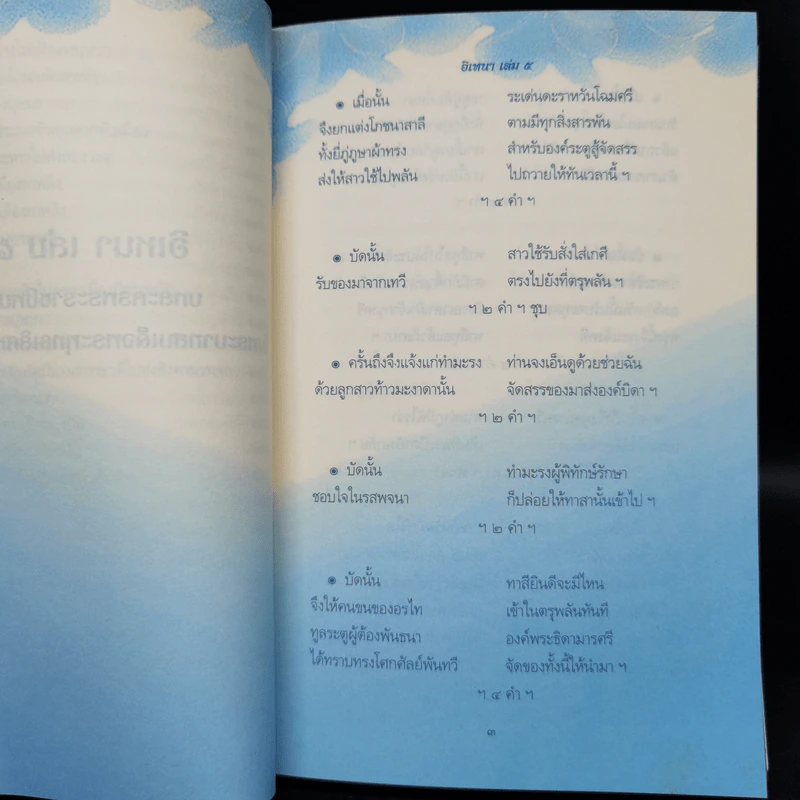 อิเหนา เล่ม ๕
๏ เมื่อนั้น ระเด่นดะราหวันโฉมศรี
จึงยกแต่งโภชนาสาลี ตามมีทุกสิ่งสารพัน
ทั้งยี่ภู่ภูษาผ้าทรง สำหรับองค์ระตูสู้จัดสรร
ส่งให้สาวใช้ไปพลัน ไปถวายให้ทันเวลานี้ ฯ
ฯ ๔ คำ ฯ
๏ บัดนั้น สาวใช้รับสั่งใส่เกศี
รับของมาจากเทวี ตรงไปยังที่ตรุพลัน ฯ
ฯ ๒ คำ ฯ ชุบ
๏ ครั้นถึงจึงแจ้งแก่ทำมะรง ท่านจงเอ็นดูด้วยช่วยฉัน
ด้วยลูกสาวท้าวมะงาดานั้น จัดสรรของมาส่งองค์บิดา ฯ
ฯ ๒ คำ ฯ
๏ บัดนั้น ทำมะรงผู้พิทักษ์รักษา
ชอบใจในรสพจนา ก็ปล่อยให้ทาสานั้นเข้าไป ฯ
ฯ ๒ คำ ฯ
๏ บัดนั้น ทาสียินดีจะมีไหน
จึงให้คนขนของอรไท เข้าในตรุพลันทันที
ทูลระตูผู้ต้องพันธนา องค์พระธิดามารศรี
ได้ทราบทรงโศกศัลย์พันทวี จัดของทั้งนี้ให้นำมา ฯ
ฯ ๔ คำ ฯ
๓